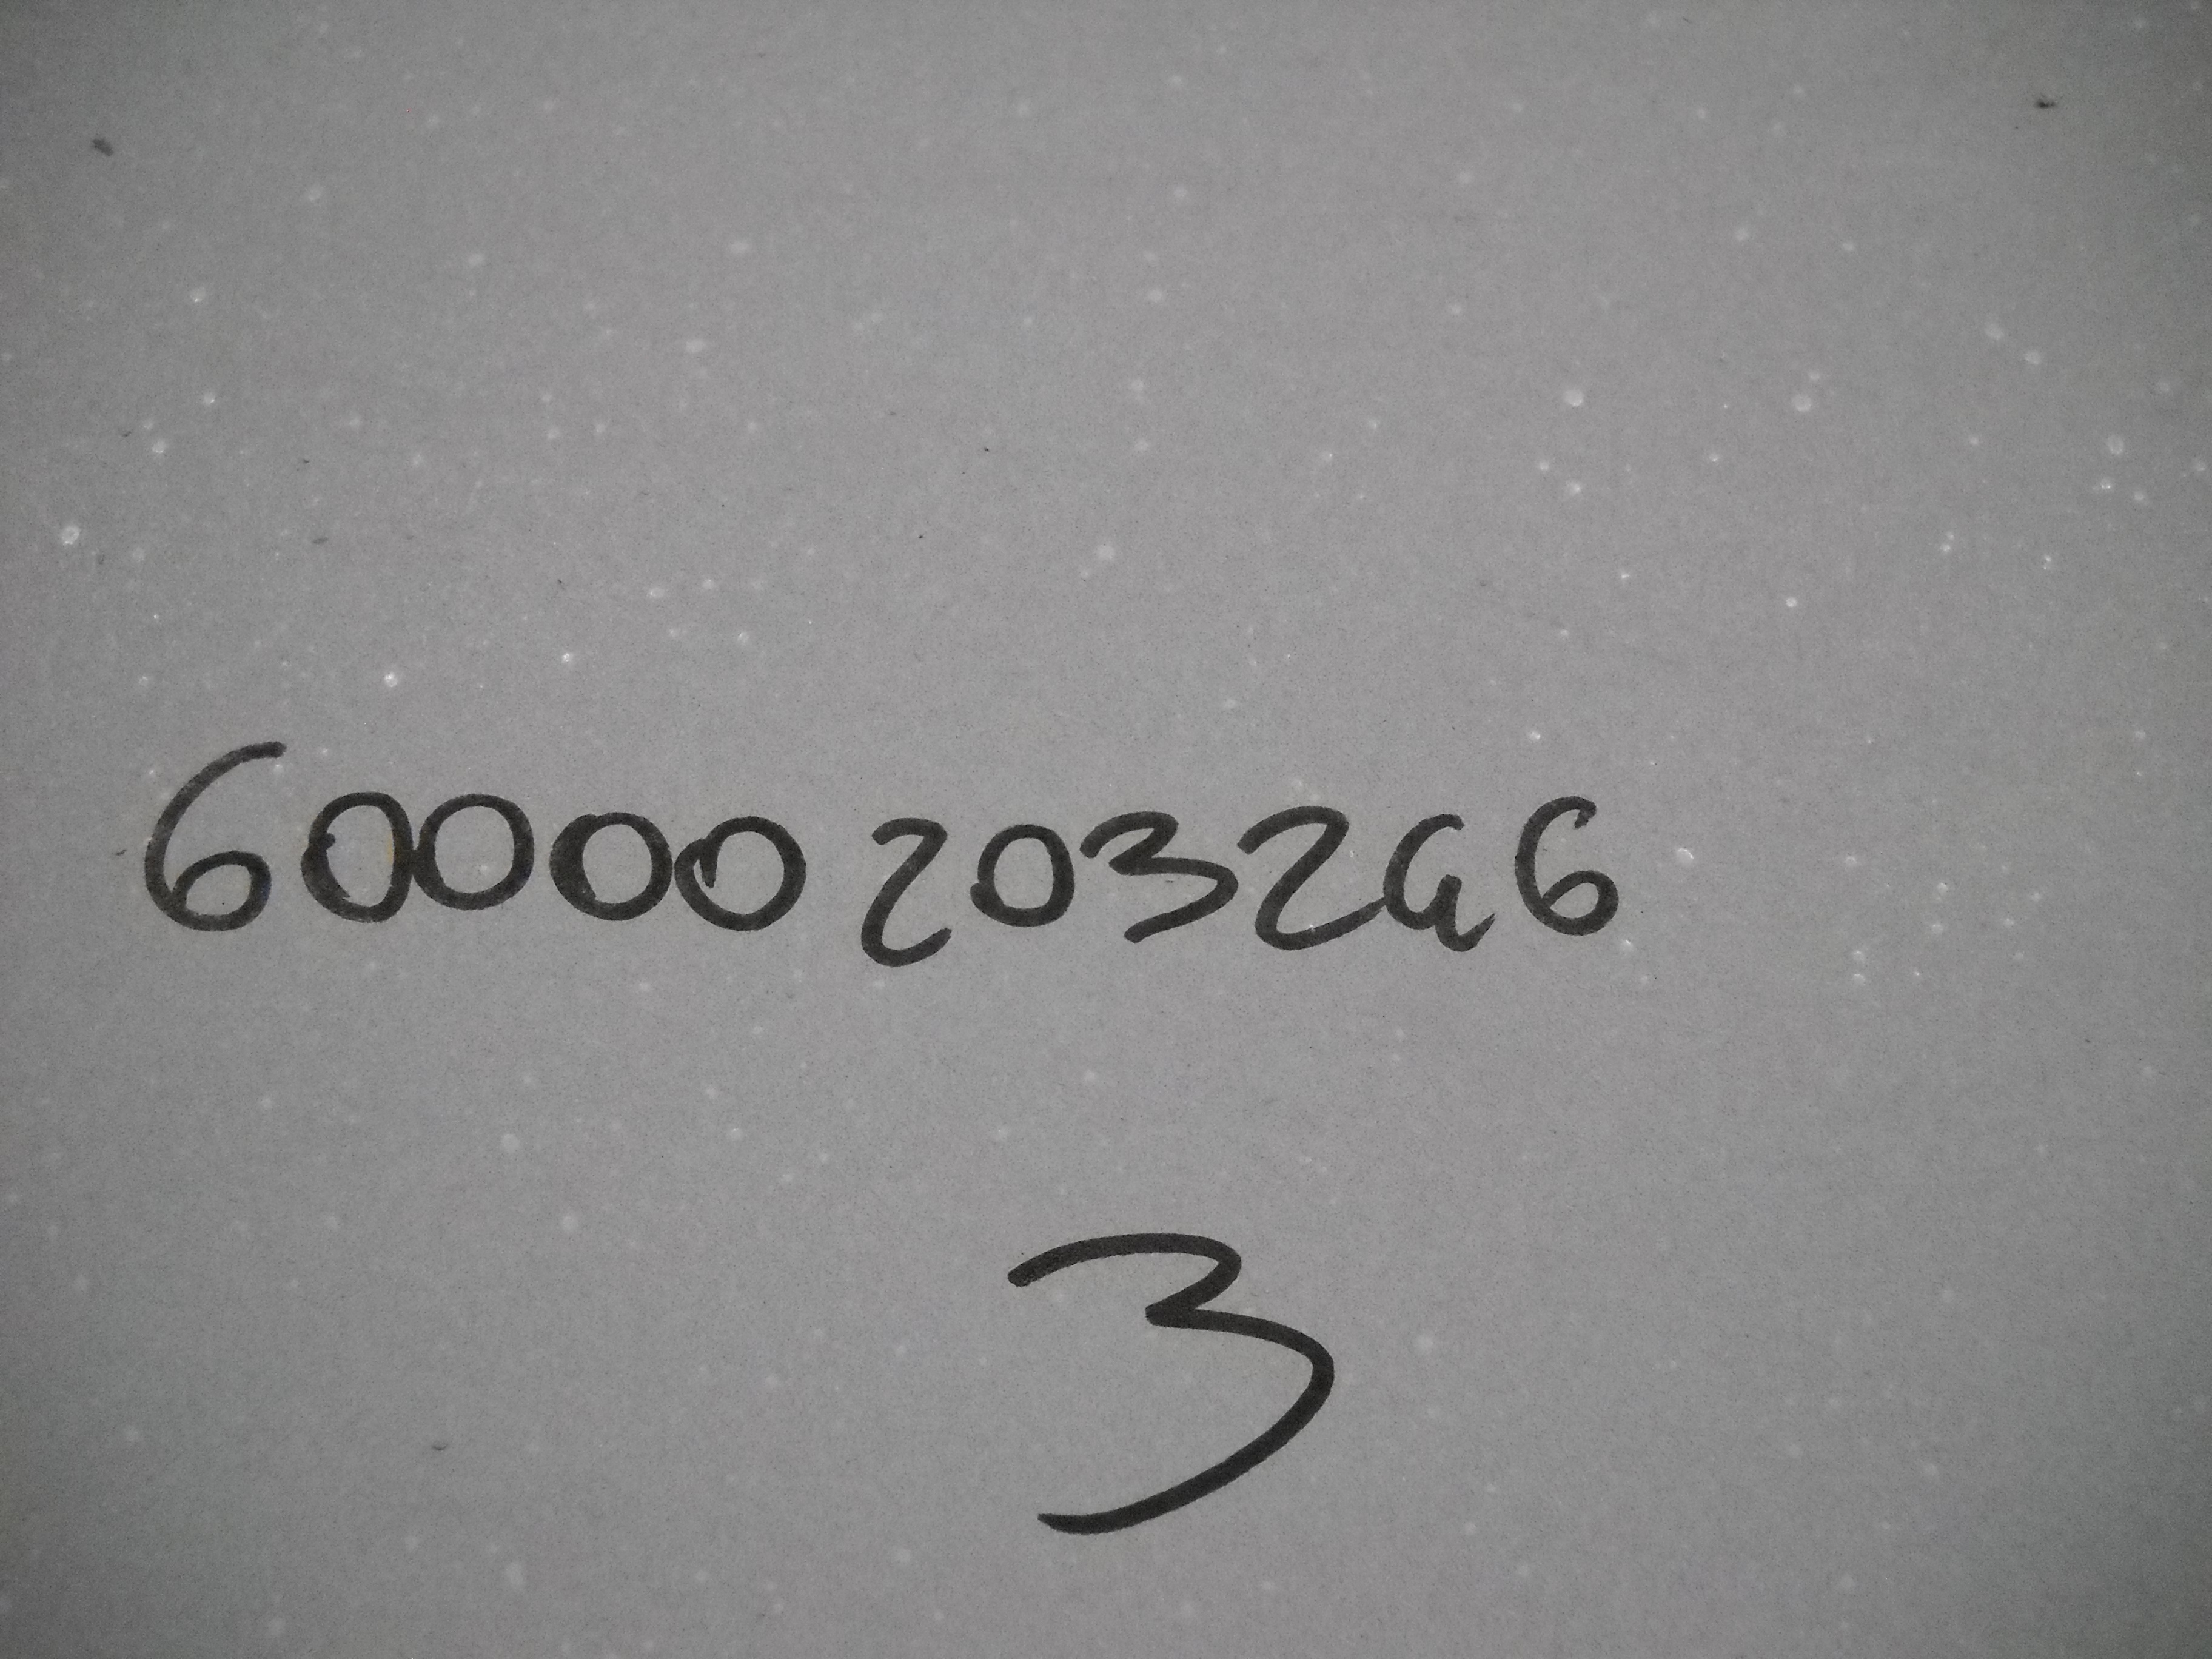 60000203296
3